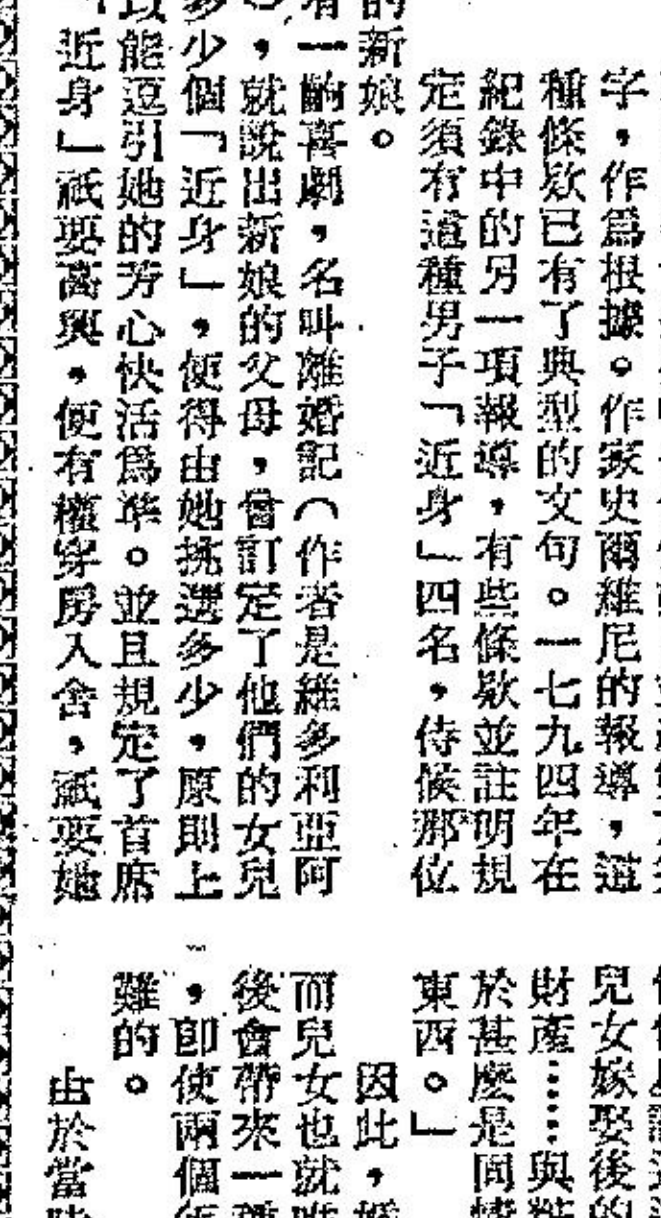 字，作爲根據。作家史爾維尼的報導，這
種條欵已有了典型的文句。一七九四年在
紀錄中的另一項報導，有些條欵並註明規
定須有這種男子「近身」四名，侍候那位
的新娘。
有一齣喜劇，名叫離婚記（作者是維多利亞阿
，就說出新娘的父母，曾訂定了他們的女兒
多少個「近身」，便得由她挑選多少，原則上
以能逗引她的芳心快活爲準。並且規定了首席
「近身」祇要高興，便有權穿房入舍，祇要她
兒女嫁娶後的
財產……與
於甚麼是同情
東西。」
因此，婚
而兒女也就
後會帶來一種
，卽使兩個
難的。
由於當時